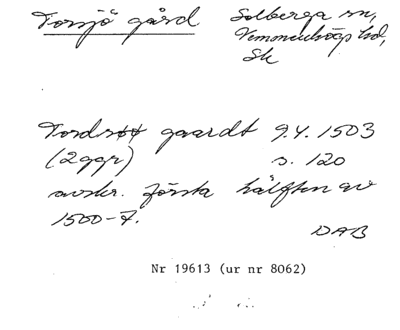 Torsjö gård
Solberga sn,
Vemmenhögs hd,
Sk
Tordsøø gaardt 9.4. 1503
(2 ggr) s. 120
avskr. första hälften av
1500-t.
DAB
Nr 19613 (ur nr 8062)